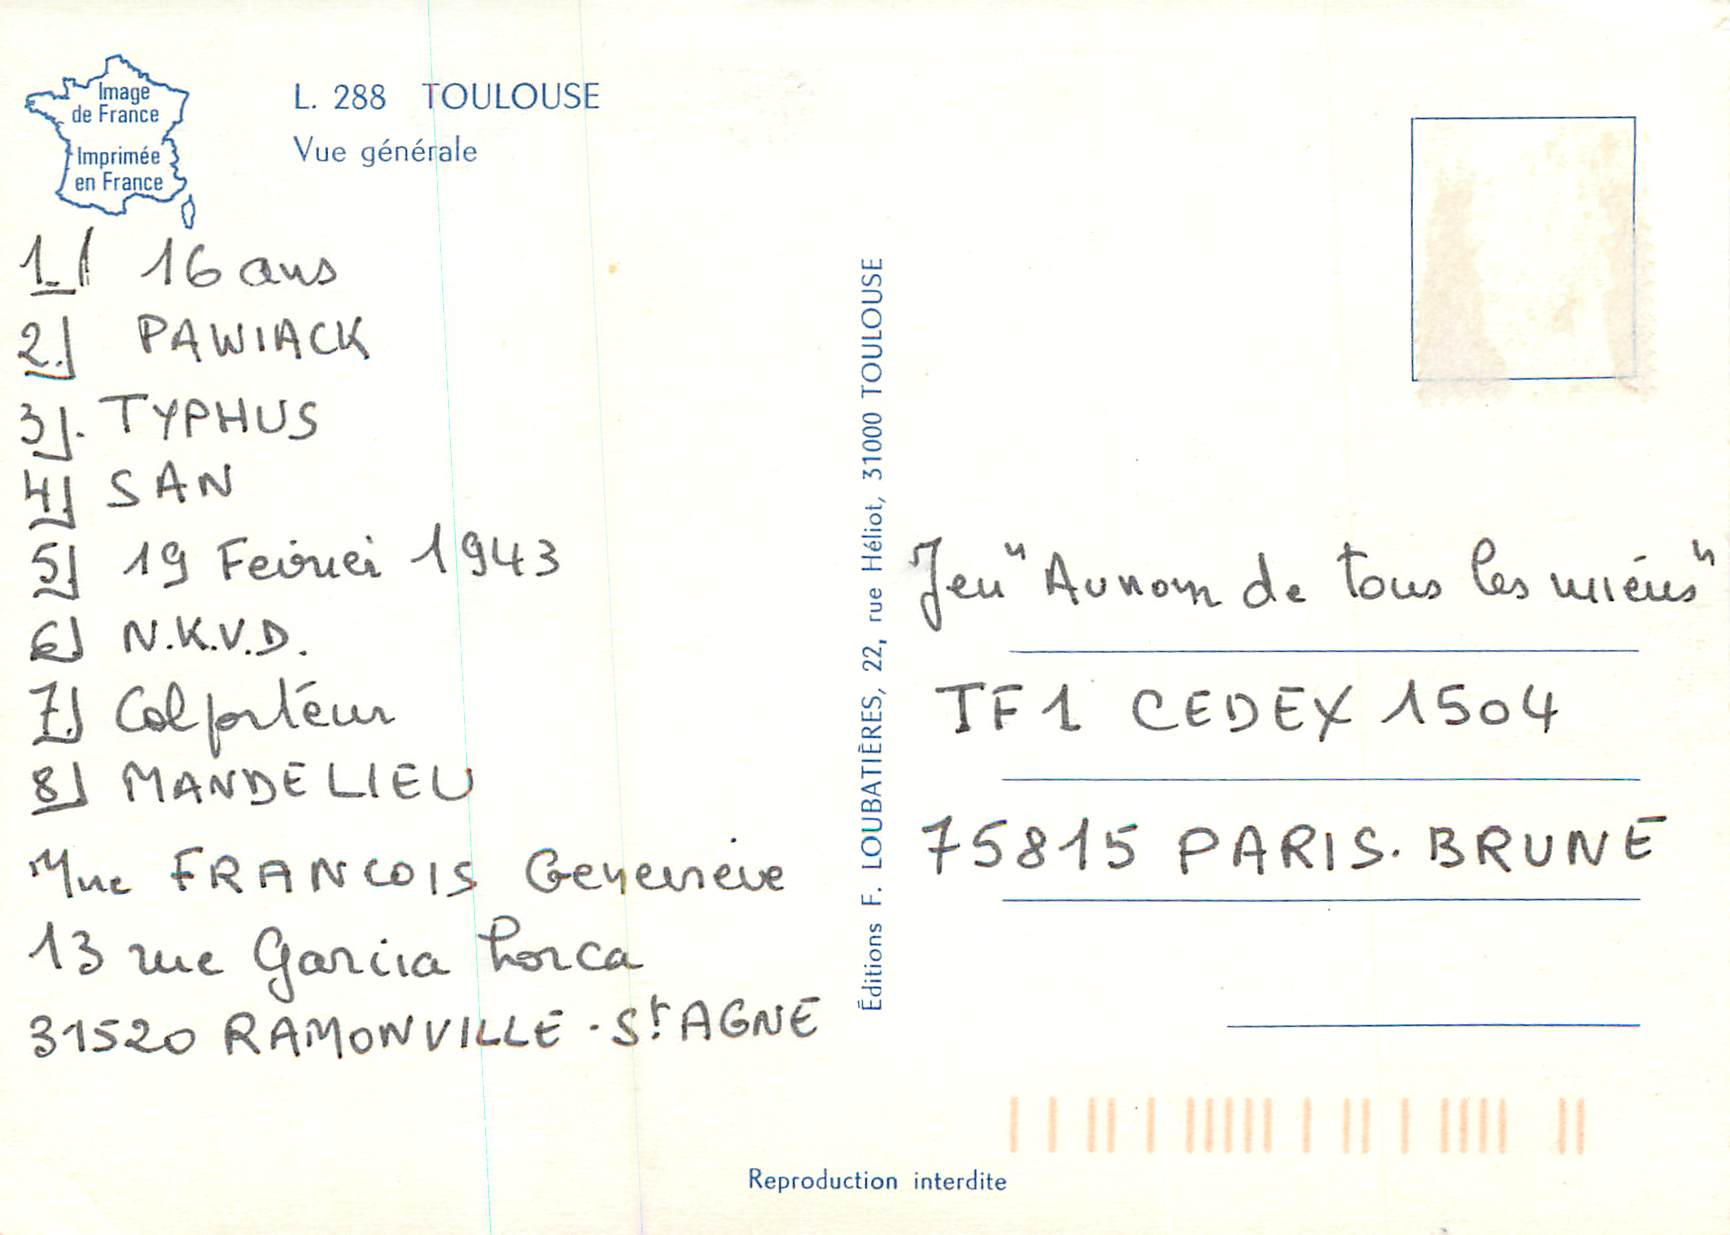 Image
de France
Imprimée
en France
L. 288 TOULOUSE
Vue générale
1) 16 ans
2) PAWIACK
3). TYPHUS
4) SAN
5) 19 Fevrier 1943
6) N.K.V.D.
7) Colporteur
8) MANDELIEU
Mme FRANCOIS Genevieve
13 rue Garcia Lorca
31520 RAMONVILLE - St AGNE
Éditions F. LOUBATIÈRES, 22, rue Héliot, 31000 TOULOUSE
Jeu "Au nom de tous les miens"
TF1 CEDEX 1504
75815 PARIS. BRUNE
Reproduction interdite